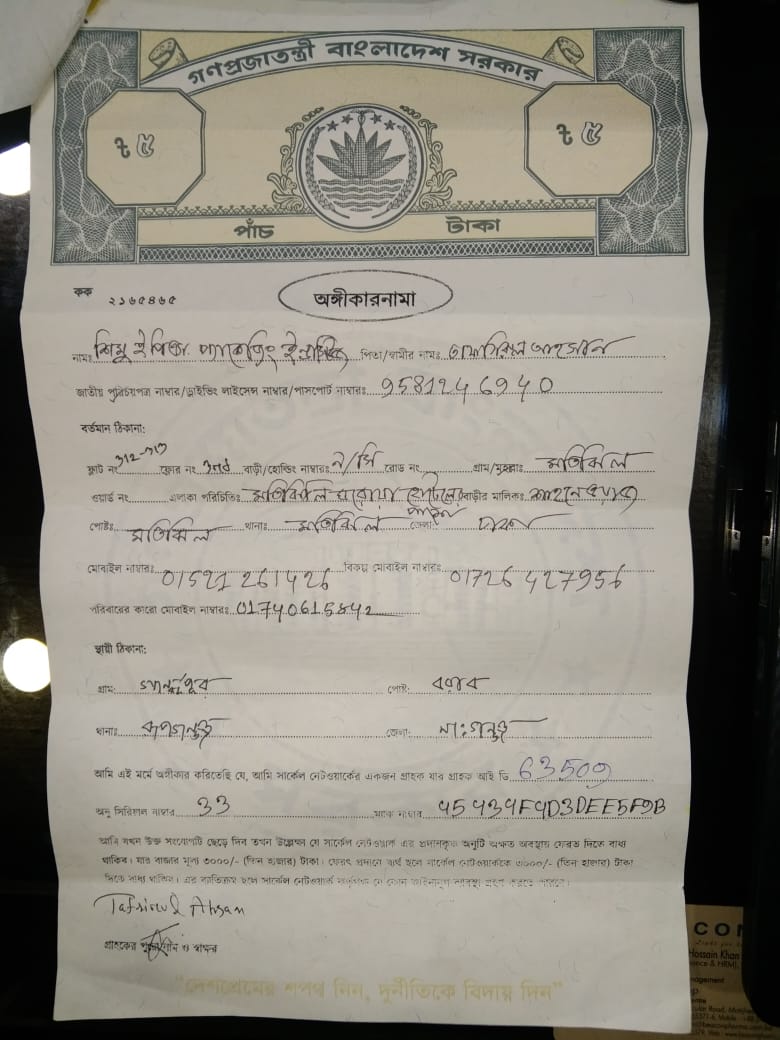 গণপ্রজাতন্ত্রী বাংলাদেশ সরকার
৳ ৫ ৳ ৫
পাঁচ টাকা
কক ২১৬৫৪৬৫
অঙ্গীকারনামা
নামঃ শিমু ই পিন্ডা প্যাকেজিং পিতা/স্বামীর নামঃ আহসান
জাতীয় পরিচয়পত্র নাম্বার/ড্রাইভিং লাইসেন্স নাম্বার/পাসপোর্ট নাম্বারঃ 9581246940
বর্তমান ঠিকানা:
ফ্লাট নং 312-313 ফ্লোর নং 3rd বাড়ী/হোল্ডিং নাম্বারঃ ন/সি রোড নং গ্রাম/মহল্লাঃ মতিঝিল
ওয়ার্ড নং এলাকা পরিচিতিঃ মতিঝিল ঘরোয়া হোটেলের বাড়ীর মালিকঃ
পাশে
পোষ্টঃ মতিঝিল থানাঃ মতিঝিল জেলাঃ ঢাকা
মোবাইল নাম্বারঃ 01521261426 বিকল্প মোবাইল নাম্বারঃ 01726427956
পরিবারের কারো মোবাইল নাম্বারঃ 01740615842
স্থায়ী ঠিকানা:
গ্রাম: পোষ্ট: বরাব
থানাঃ রূপগঞ্জ জেলা: না:গঞ্জ
আমি এই মর্মে অঙ্গীকার করিতেছি যে, আমি সার্কেল নেটওয়ার্কের একজন গ্রাহক যার গ্রাহক আই ডি 63509
অনু সিরিয়াল নাম্বার 33 ম্যাক নাম্বার 45434F4D3DEE5F9B
আমি যখন উক্ত সংযোগটি ছেড়ে দিব তখন উল্লেখ্য যে সার্কেল নেটওয়ার্ক এর প্রদানকৃত অনুটি অক্ষত অবস্থায় ফেরত দিতে বাধ্য
থাকিব। যার বাজার মূল্য ৩০০০/- (তিন হাজার) টাকা। ফেরৎ প্রদানে ব্যর্থ হলে সার্কেল নেটওয়ার্ককে ৩০০০/- (তিন হাজার) টাকা
দিতে বাধ্য থাকিব। এর ব্যতিক্রম হলে সার্কেল নেটওয়ার্ক কর্তৃপক্ষ যে কোন আইনানুগ ব্যবস্থা গ্রহণ করতে পারবে।
Tafsirul Ahsan
গ্রাহকের পূর্ণ নাম ও স্বাক্ষর
"দেশপ্রেমের শপথ নিন, দুর্নীতিকে বিদায় দিন"
CON
Hossain Khan